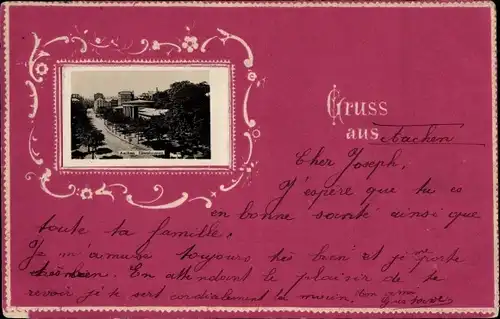 Gruss
aus Aachen
Cher Joseph,
J'espère que tu es
en bonne santé ainsi que
toute ta famille.
Je m'amuse toujours très bien et je me porte
très bien. En attendant le plaisir de te
revoir je te sert cordialement la main. Ton ami
Gustave
Aachen